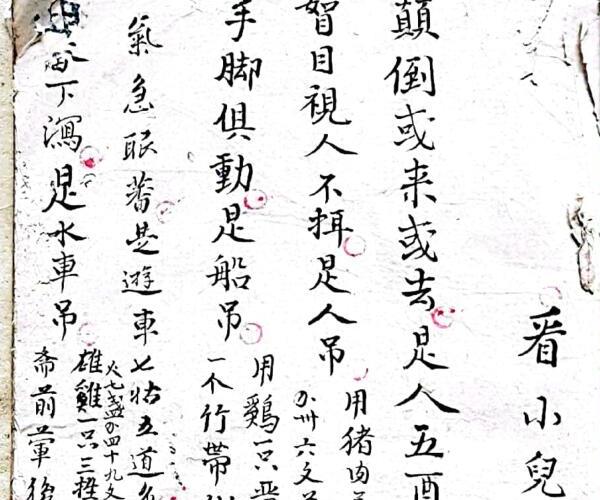 看小兒
顛倒或来或去是人五酉
智目視人不揖是人吊
用猪肉
卅六文
手脚俱動是船吊
用鷄一只
一个竹帶
氣急眼番是遊車
七姑五道
火七盏 四十九文
雄雞一只三牲
下瀉是水車吊
斋前葷後